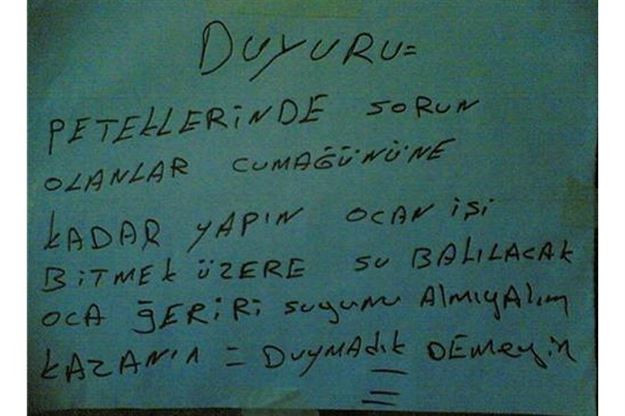 DUYURU=
PETELLERİNDE SORUN
OLANLAR CUMAĞÜNÜNE
KADAR YAPIN OCAN İŞİ
BİTMEK ÜZERE SU BALILACAK
OCA ĞERİRİ suyumu Almıyalım
KAZANIN = DUYMADIK DEMEYİN